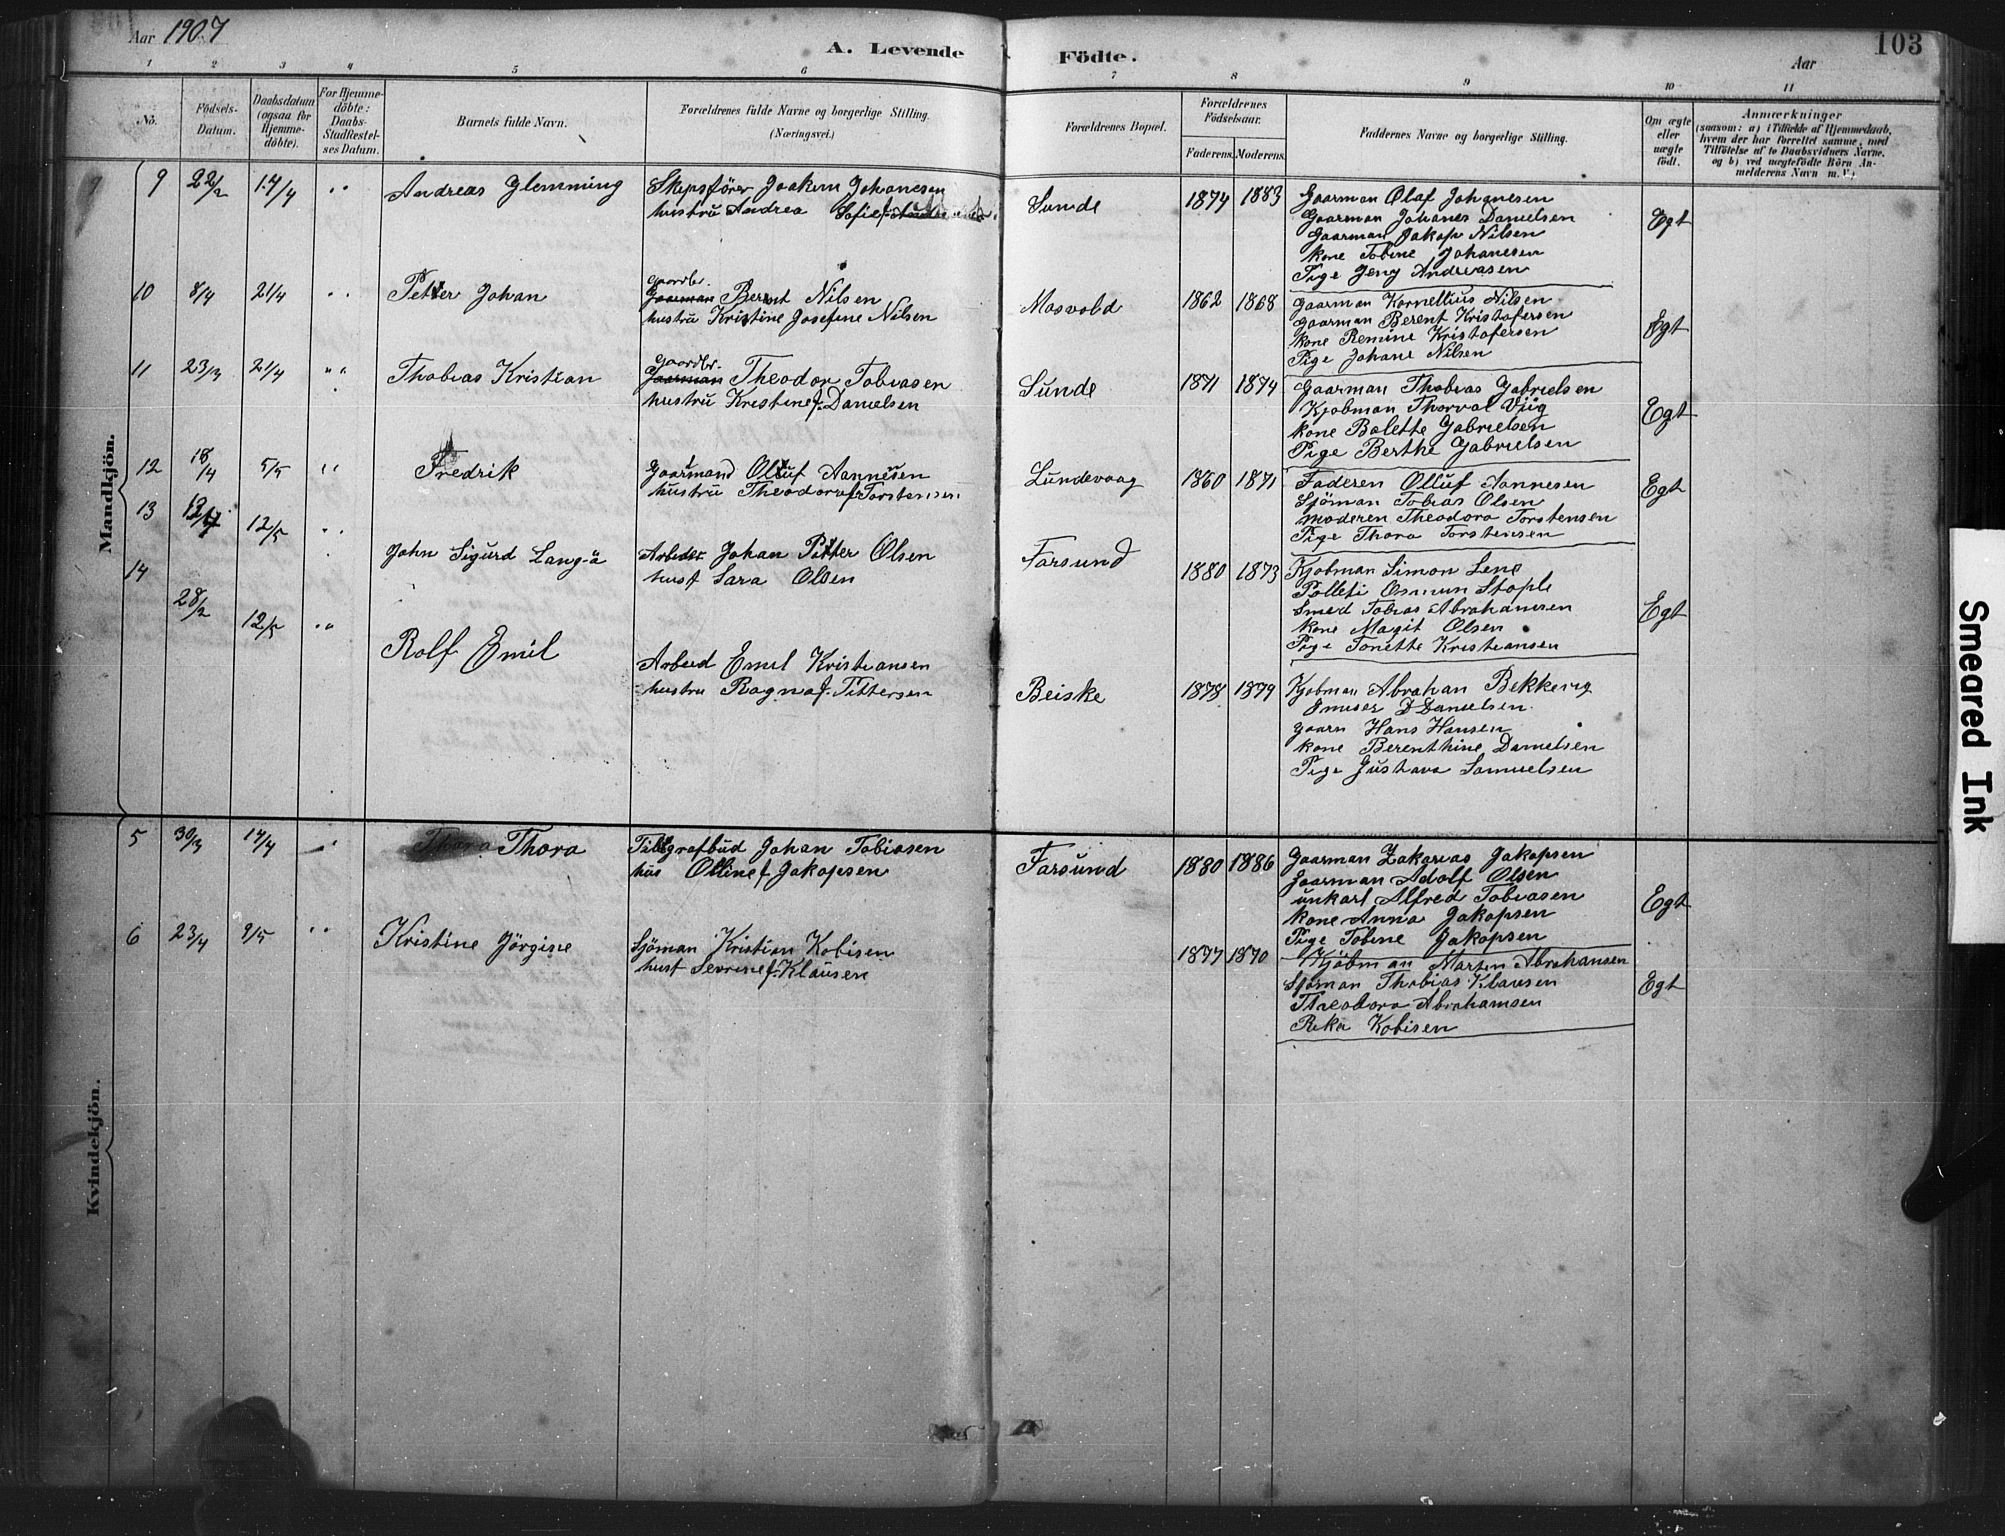 Aar 1907
A. Levende Födte.
Aar
103
1 2 3 4 5 6 7 8 9 10 11
No.
Födsels-Datum.
Daabsdatum (ogsaa for Hjemmedöbte).
For Hjemmedöbte: Daabs-Stadfæstelses Datum.
Barnets fulde Navn.
Forældrenes fulde Navne og borgerlige Stilling. (Næringsvei.)
Forældrenes Bopæl.
Forældrenes Födselsaar.
Faderens. Moderens.
Faddernes Navne og borgerlige Stilling.
Om ægte eller uægte födt.
Anmærkninger
(saasom: a) i Tilfælde af Hjemmedaab, hvem der har forrettet samme, med Tilföielse af to Daabsvidners Navne, og b) ved uægtefödte Börn Anmelderens Navn m. V.)
Mandkjön.
9 22/2 14/4 " Andreas Glemming
Skipsförer Joakim Johanesen
hustru Andrea Sofie f.
Sunde 1874 1883
Gaarman Olaf Johanesen
Gaarman Johanes Danielsen
Gaarman Jakop Nilsen
kone Tobine Johanesen
Pige Jeny Andreasen
Egt
10 8/4 21/4 " Petter Johan
Gaardbr.
Gaarman Berent Nilsen
hustru Kristine Josefine Nilsen
Mosvold 1862 1868
Gaarman Kornelius Nilsen
Gaarman Berent Kristofersen
kone Remine Kristofersen
Pige Johane Nilsen
Egt
11 23/3 21/4 " Thobias Kristian
Gaardbr.
Gaarman Theodor Tobiasen
hustru Kristine f. Danielsen
Sunde 1871 1874
Gaarman Thobias Gabrielsen
Kjobman Thorval Vjig
kone Bolette Gabrielsen
Pige Berthe Gabrielsen
Egt
12 18/4 5/5 " Fredrik
Gaarmand Olluf Aannesen
hustru Theodora f Torstensen
Lundevaag 1860 1871
Faderen Olluf Aannesen
Sjöman Tobias Olsen
moderen Theodora Torstensen
Pige Thora Torstensen
Egt
13 12/5 " John Sigurd Lang-ä
Arbeder Johan Pitter Olsen
hust Sara Olsen
Farsund 1880 1873
Kjobman Simon Lene
Politi Osmun Stople
Smed Tobias Abrahamsen
kone Magit Olsen
Pige Tonette Kristiansen
Egt
14 28/2 12/5 " Rolf Emil
Arbeid Emil Kristiansen
hustru Ragna f. Pittersen
Beiske 1878 1879
Kjobman Abrahan Bekkevig
D Danielsen
gaarn Hans Hansen
kone Berenthine Danielsen
Pige Gustava Samuelsen
Kvindekjön.
5 30/3 14/4 " Thora Thora
Tilegrafbud Johan Tobiasen
hus Olline f Jakopsen
Farsund 1880 1886
Gaarman Zakarias Jakopsen
Gaarman Adolf Olsen
unkarl Alfred Tobiasen
kone Anna Jakopsen
Pige Tobine Jakopsen
Egt
6 23/4 9/5 " Kristine Jörgine
Sjöman Kristian Kobisen
hust Sevrine f. Klausen
1877 1870
Kjöbman Marten Abrahansen
Sjöman Thobias Klausen
Theodora Abrahamsen
Rika Kobisen
Egt
Smeared Ink